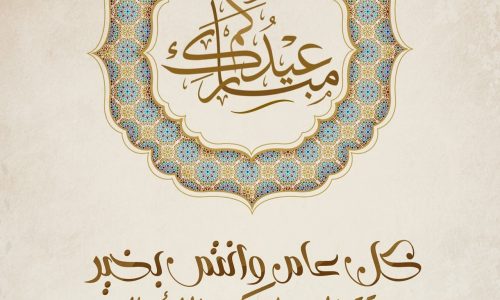 عيدكم مبارك
كل عام وأنتم بخير